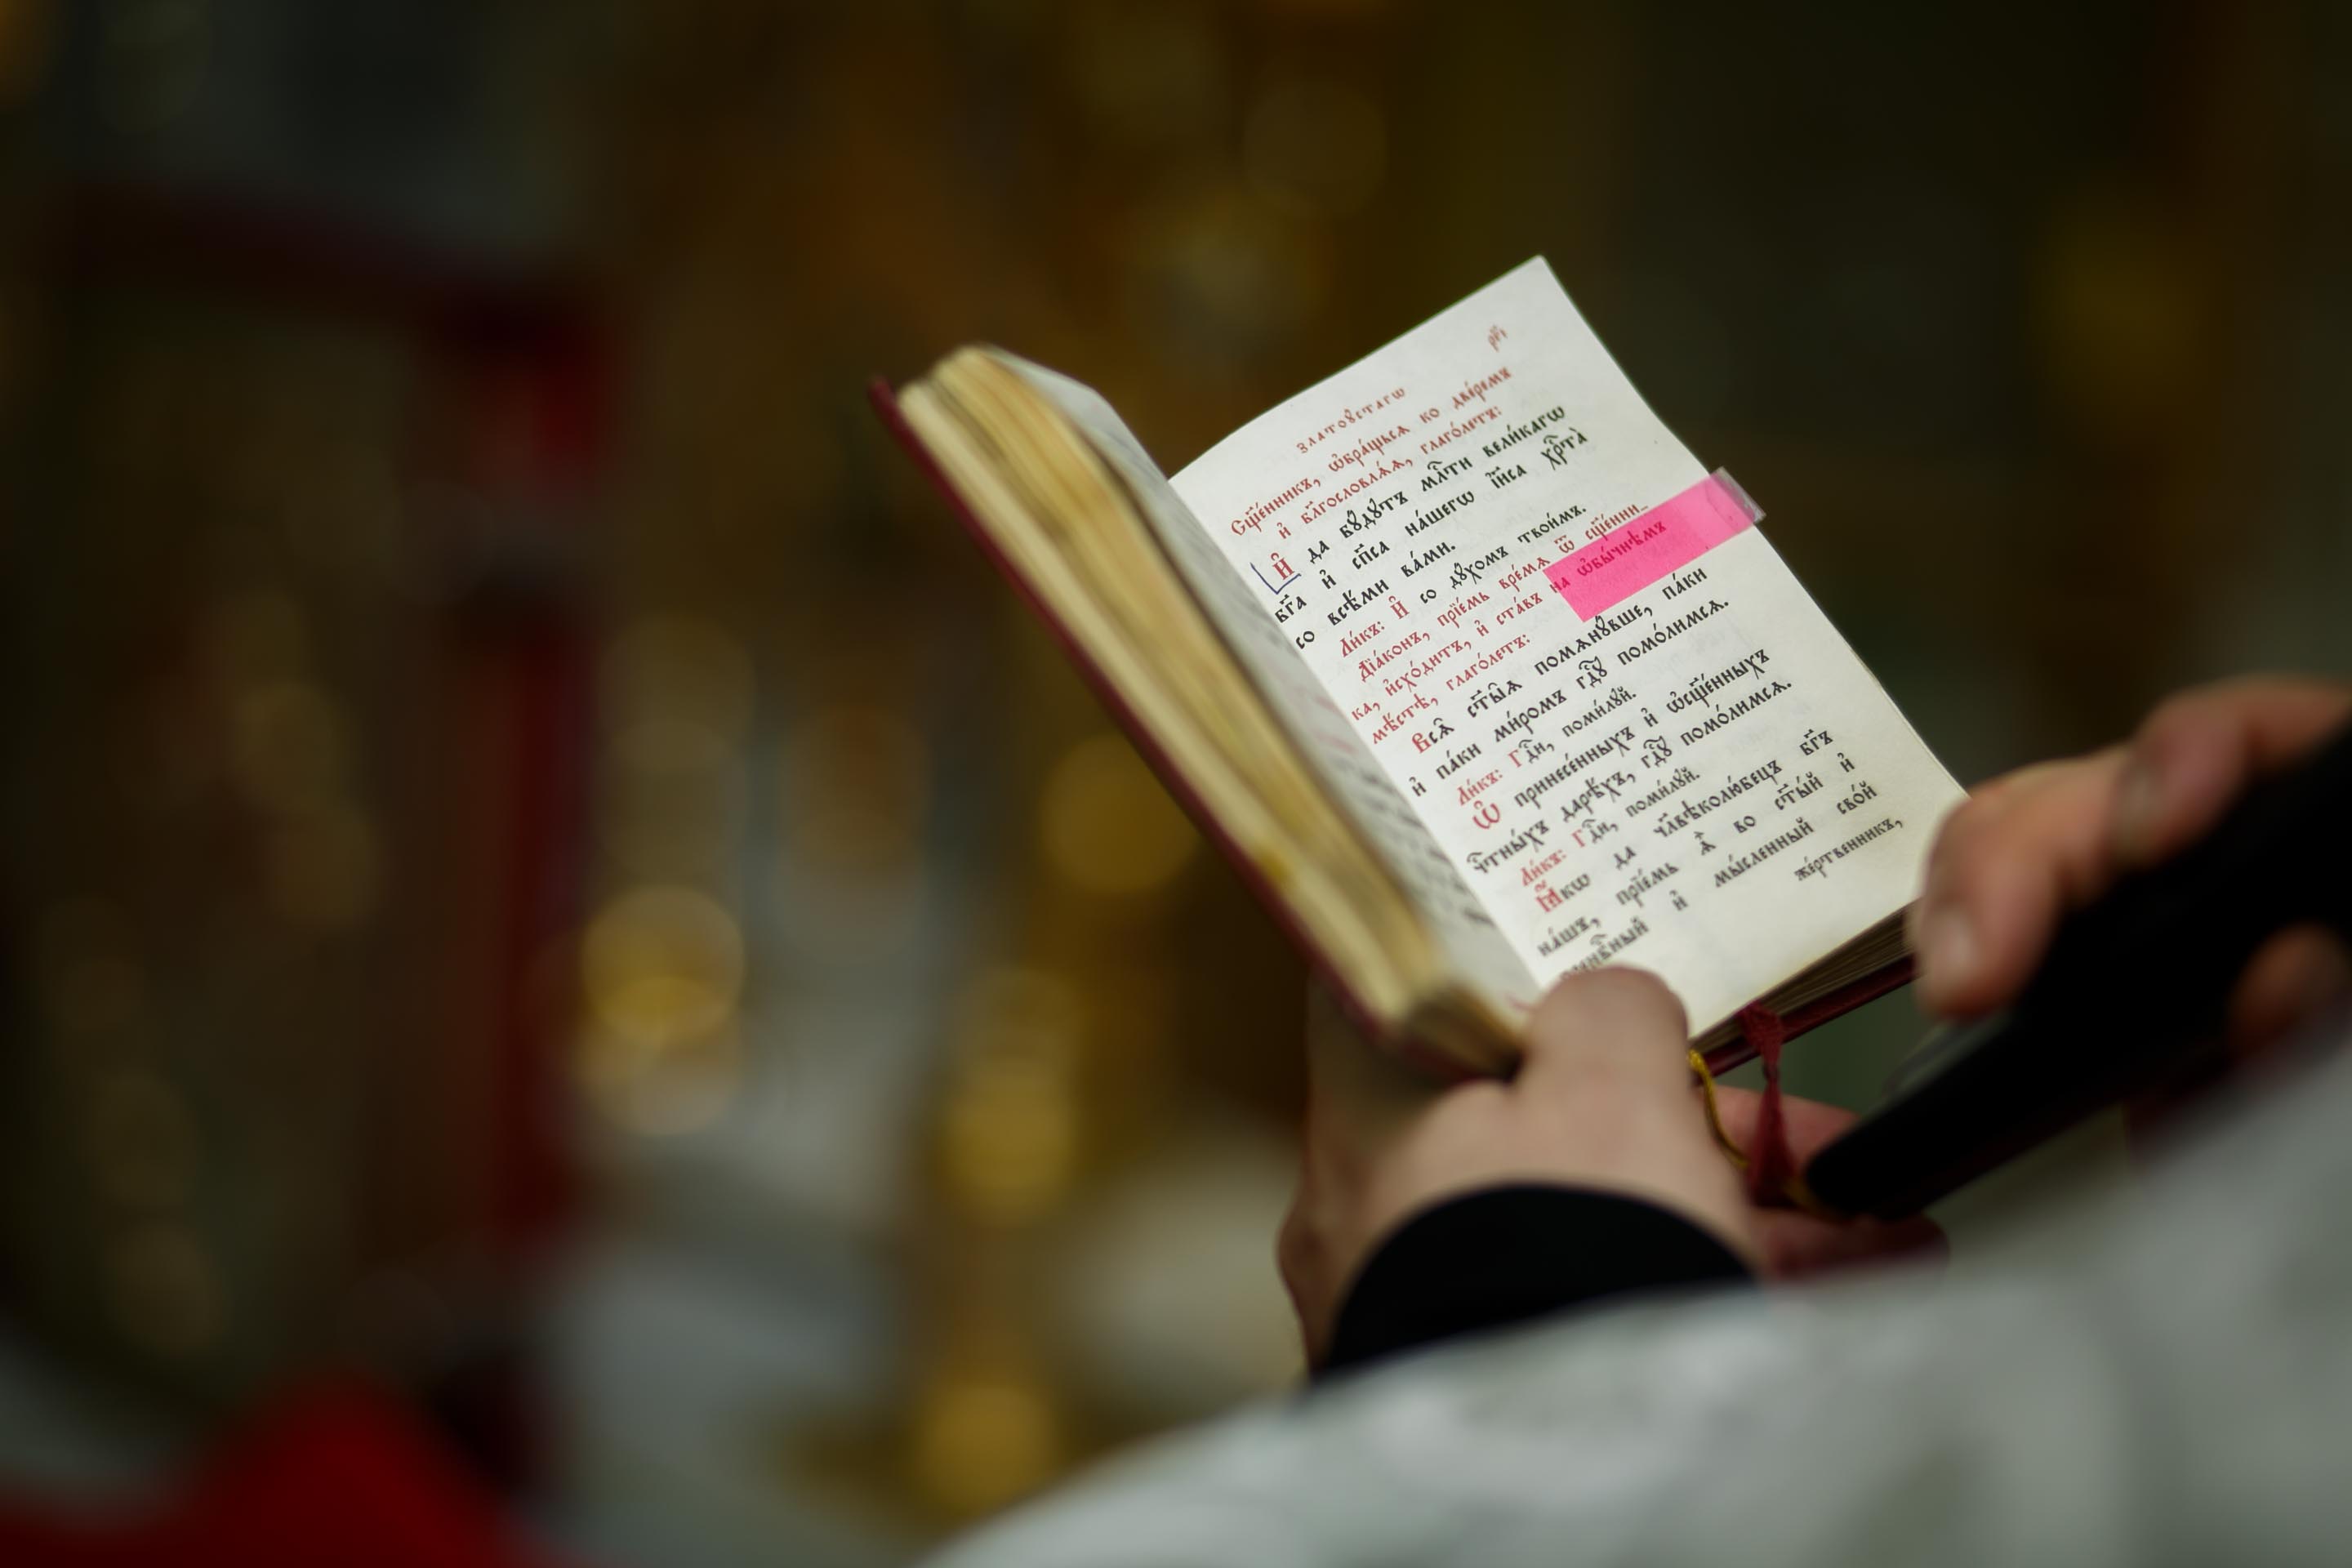 рн҃і
златоꙋ́стагѡ
Сщ҃е́нникъ, ѡ҆бра́щьсѧ ко две́ремъ
и҆ блг҃ословлѧ́ѧ, глаго́летъ:
И҆ да бꙋ́дꙋтъ млⷭ҇ти вели́кагѡ
бг҃а и҆ сп҃са на́шегѡ і҆и҃са хрⷭ҇та̀
со всѣ́ми ва́ми.
Ли́къ: И҆ со дꙋ́хомъ твои́мъ.
Дїа́конъ, прїе́мь вре́мѧ ѿ сщ҃е́нни-
ка, и҆схо́дитъ, и҆ ста́въ на ѡ҆бы́чнѣмъ
мѣ́стѣ, глаго́летъ:
Всѧ̑ ст҃ы̑ѧ помѧнꙋ́вше, па́ки
и҆ па́ки ми́ромъ гдⷭ҇ꙋ помо́лимсѧ.
Ли́къ: Гдⷭ҇и, поми́лꙋй.
Ѡ҆ принесе́нныхъ и҆ ѡ҆сщ҃е́нныхъ
чⷭ҇тны́хъ дарѣ́хъ, гдⷭ҇ꙋ помо́лимсѧ.
Ли́къ: Гдⷭ҇и, поми́лꙋй.
Ꙗ҆́кѡ да чл҃вѣколю́бецъ бг҃ъ
на́шъ, прїе́мь ѧ҆̀ во ст҃ы́й и҆
и҆ мы́сленный сво́й
же́ртвенникъ,